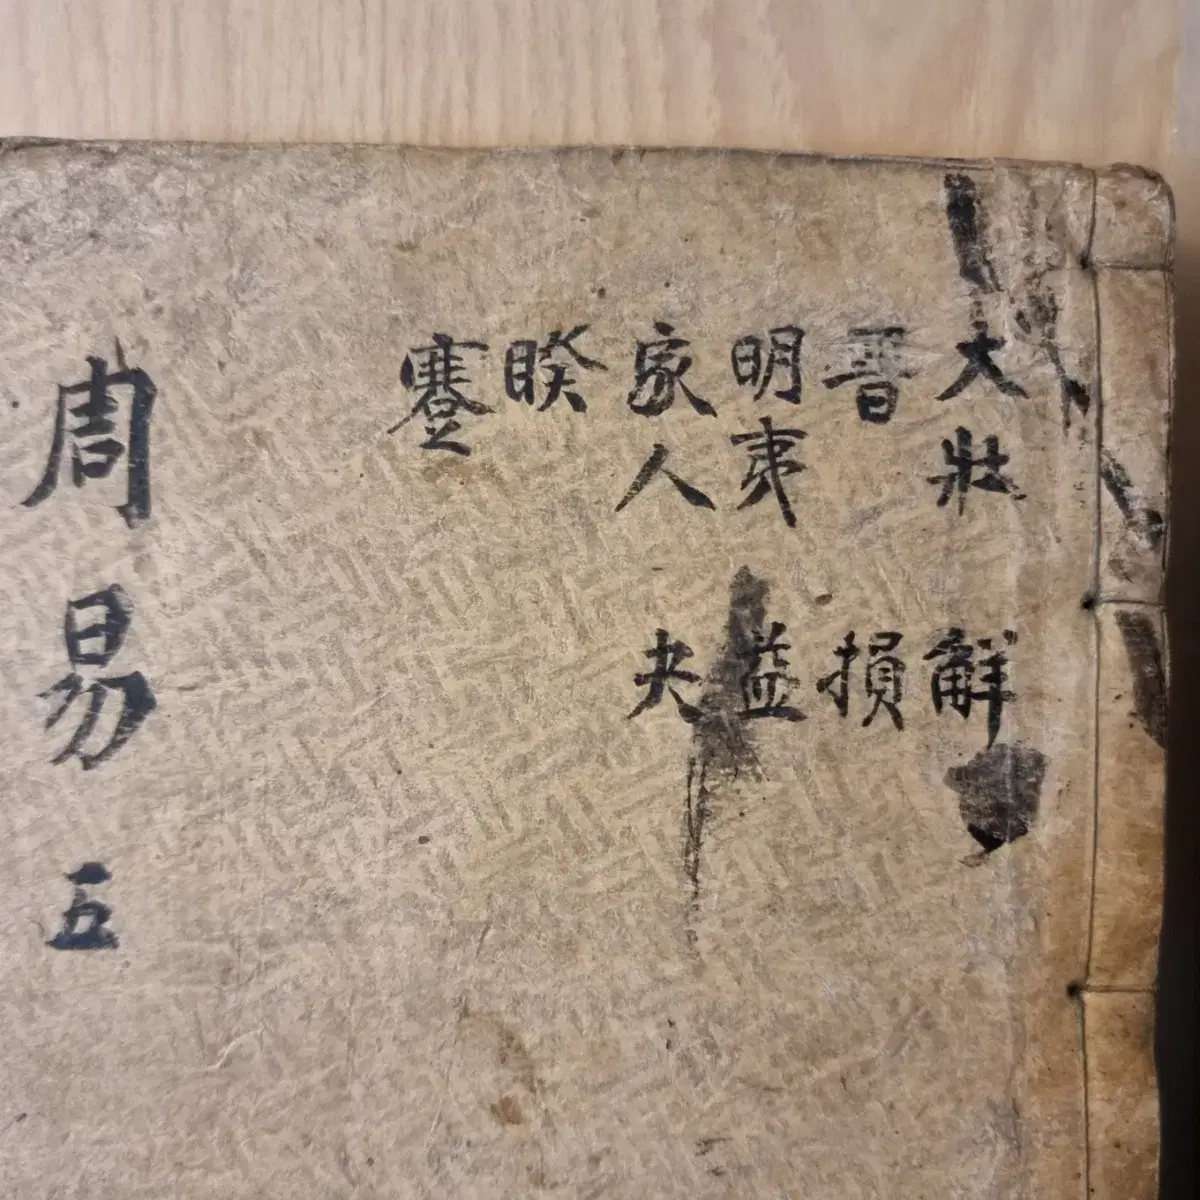 大壯
晋
明夷
家人
睽
蹇
解
損
益
夬
周易 五